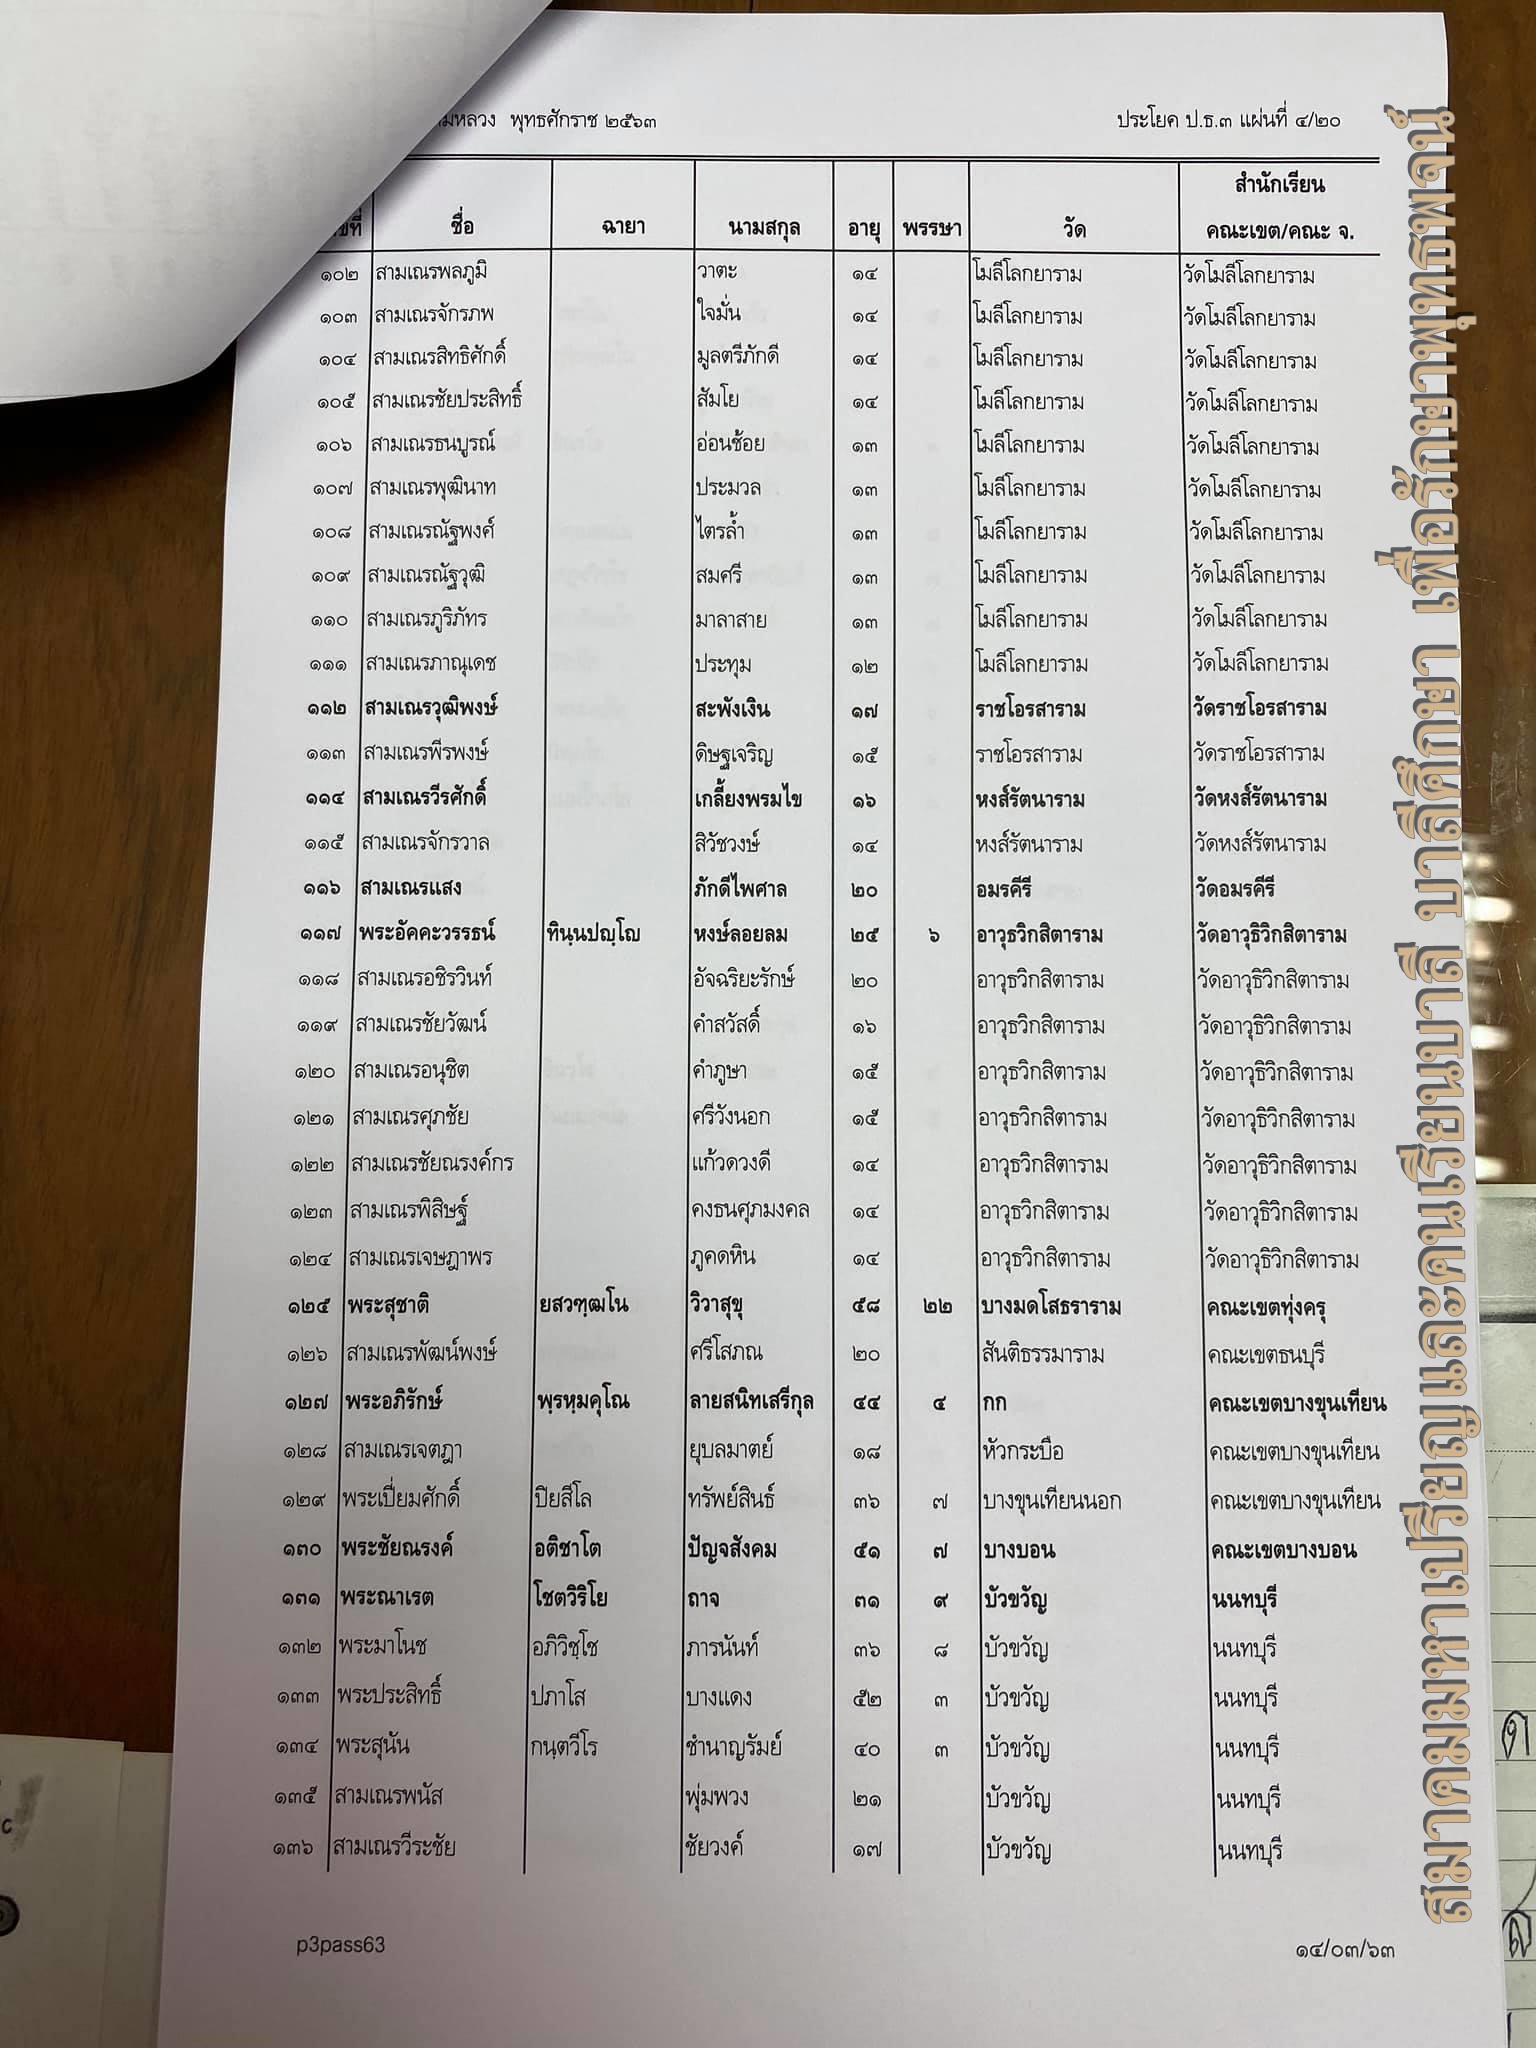 มหลวง พุทธศักราช ๒๕๖๓ ประโยค ป.ธ.๓ แผ่นที่ ๔/๒๐
ที่ ชื่อ ฉายา นามสกุล อายุ พรรษา วัด สำนักเรียน คณะเขต/คณะ จ.
๑๐๒ สามเณรพลภูมิ วาตะ ๑๔ โมลีโลกยาราม วัดโมลีโลกยาราม
๑๐๓ สามเณรจักรภพ ใจมั่น ๑๔ โมลีโลกยาราม วัดโมลีโลกยาราม
๑๐๔ สามเณรสิทธิศักดิ์ มูลตรีภักดี ๑๔ โมลีโลกยาราม วัดโมลีโลกยาราม
๑๐๕ สามเณรชัยประสิทธิ์ สัมโย ๑๔ โมลีโลกยาราม วัดโมลีโลกยาราม
๑๐๖ สามเณรธนบูรณ์ อ่อนช้อย ๑๓ โมลีโลกยาราม วัดโมลีโลกยาราม
๑๐๗ สามเณรพุฒินาท ประมวล ๑๓ โมลีโลกยาราม วัดโมลีโลกยาราม
๑๐๘ สามเณรณัฐพงศ์ ไตรล้ำ ๑๓ โมลีโลกยาราม วัดโมลีโลกยาราม
๑๐๙ สามเณรณัฐวุฒิ สมศรี ๑๓ โมลีโลกยาราม วัดโมลีโลกยาราม
๑๑๐ สามเณรภูริภัทร มาลาสาย ๑๓ โมลีโลกยาราม วัดโมลีโลกยาราม
๑๑๑ สามเณรภาณุเดช ประทุม ๑๒ โมลีโลกยาราม วัดโมลีโลกยาราม
๑๑๒ สามเณรวุฒิพงษ์ สะพังเงิน ๑๗ ราชโอรสาราม วัดราชโอรสาราม
๑๑๓ สามเณรพีรพงษ์ ดิษฐเจริญ ๑๕ ราชโอรสาราม วัดราชโอรสาราม
๑๑๔ สามเณรวีรศักดิ์ เกลี้ยงพรมไข ๑๖ หงส์รัตนาราม วัดหงส์รัตนาราม
๑๑๕ สามเณรจักรวาล สิวัชวงษ์ ๑๔ หงส์รัตนาราม วัดหงส์รัตนาราม
๑๑๖ สามเณรแสง ภักดีไพศาล ๒๐ อมรคีรี วัดอมรคีรี
๑๑๗ พระอัคคะวรรธน์ ทินฺนปญฺโญ หงษ์ลอยลม ๒๕ ๖ อาวุธวิกสิตาราม วัดอาวุธิวิกสิตาราม
๑๑๘ สามเณรอชิรวินท์ อัจฉริยะรักษ์ ๒๐ อาวุธวิกสิตาราม วัดอาวุธิวิกสิตาราม
๑๑๙ สามเณรชัยวัฒน์ คำสวัสดิ์ ๑๖ อาวุธวิกสิตาราม วัดอาวุธิวิกสิตาราม
๑๒๐ สามเณรอนุชิต คำภูษา ๑๕ อาวุธวิกสิตาราม วัดอาวุธิวิกสิตาราม
๑๒๑ สามเณรศุภชัย ศรีวังนอก ๑๕ อาวุธวิกสิตาราม วัดอาวุธิวิกสิตาราม
๑๒๒ สามเณรชัยณรงค์กร แก้วดวงดี ๑๔ อาวุธวิกสิตาราม วัดอาวุธิวิกสิตาราม
๑๒๓ สามเณรพิสิษฐ์ คงธนศุภมงคล ๑๔ อาวุธวิกสิตาราม วัดอาวุธิวิกสิตาราม
๑๒๔ สามเณรเจษฎาพร ภูคดหิน ๑๔ อาวุธวิกสิตาราม วัดอาวุธิวิกสิตาราม
๑๒๕ พระสุชาติ ยสวฑฺฒโน วิวาสุขุ ๕๘ ๒๒ บางมดโสธราราม คณะเขตทุ่งครุ
๑๒๖ สามเณรพัฒน์พงษ์ ศรีโสภณ ๒๐ สันติธรรมาราม คณะเขตธนบุรี
๑๒๗ พระอภิรักษ์ พฺรหฺมคุโณ ลายสนิทเสรีกุล ๔๔ ๔ กก คณะเขตบางขุนเทียน
๑๒๘ สามเณรเจตฎา ยุบลมาตย์ ๑๘ หัวกระบือ คณะเขตบางขุนเทียน
๑๒๙ พระเปี่ยมศักดิ์ ปิยสีโล ทรัพย์สินธ์ ๓๖ ๗ บางขุนเทียนนอก คณะเขตบางขุนเทียน
๑๓๐ พระชัยณรงค์ อติชาโต ปัญจสังคม ๕๑ ๗ บางบอน คณะเขตบางบอน
๑๓๑ พระณาเรต โชตวิริโย ถาจ ๓๑ ๙ บัวขวัญ นนทบุรี
๑๓๒ พระมาโนช อภิวิชฺโช ภารนันท์ ๓๖ ๘ บัวขวัญ นนทบุรี
๑๓๓ พระประสิทธิ์ ปภาโส บางแดง ๕๒ ๓ บัวขวัญ นนทบุรี
๑๓๔ พระสุนัน กนฺตวีโร ชำนาญรัมย์ ๔๐ ๓ บัวขวัญ นนทบุรี
๑๓๕ สามเณรพนัส พุ่มพวง ๒๑ บัวขวัญ นนทบุรี
๑๓๖ สามเณรวีระชัย ชัยวงค์ ๑๗ บัวขวัญ นนทบุรี
p3pass63 ๑๔/๐๓/๖๓
สมาคมมหาเปรียญและคนเรียนบาลี บาลีศึกษา เพื่อรักษาพุทธพจน์